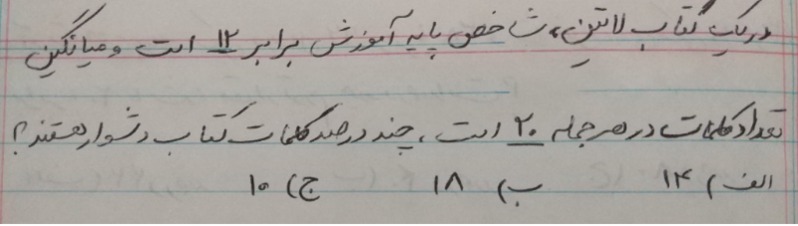 در یک کتاب لاتین، شاخص پایه آموزش برابر ۱۲ است و میانگین
تعداد کلمات در هر جمله ۲۰ است، چند درصد کلمات کتاب دشوار هستند؟
الف) ۱۴ ب) ۱۸ ج) ۱۰